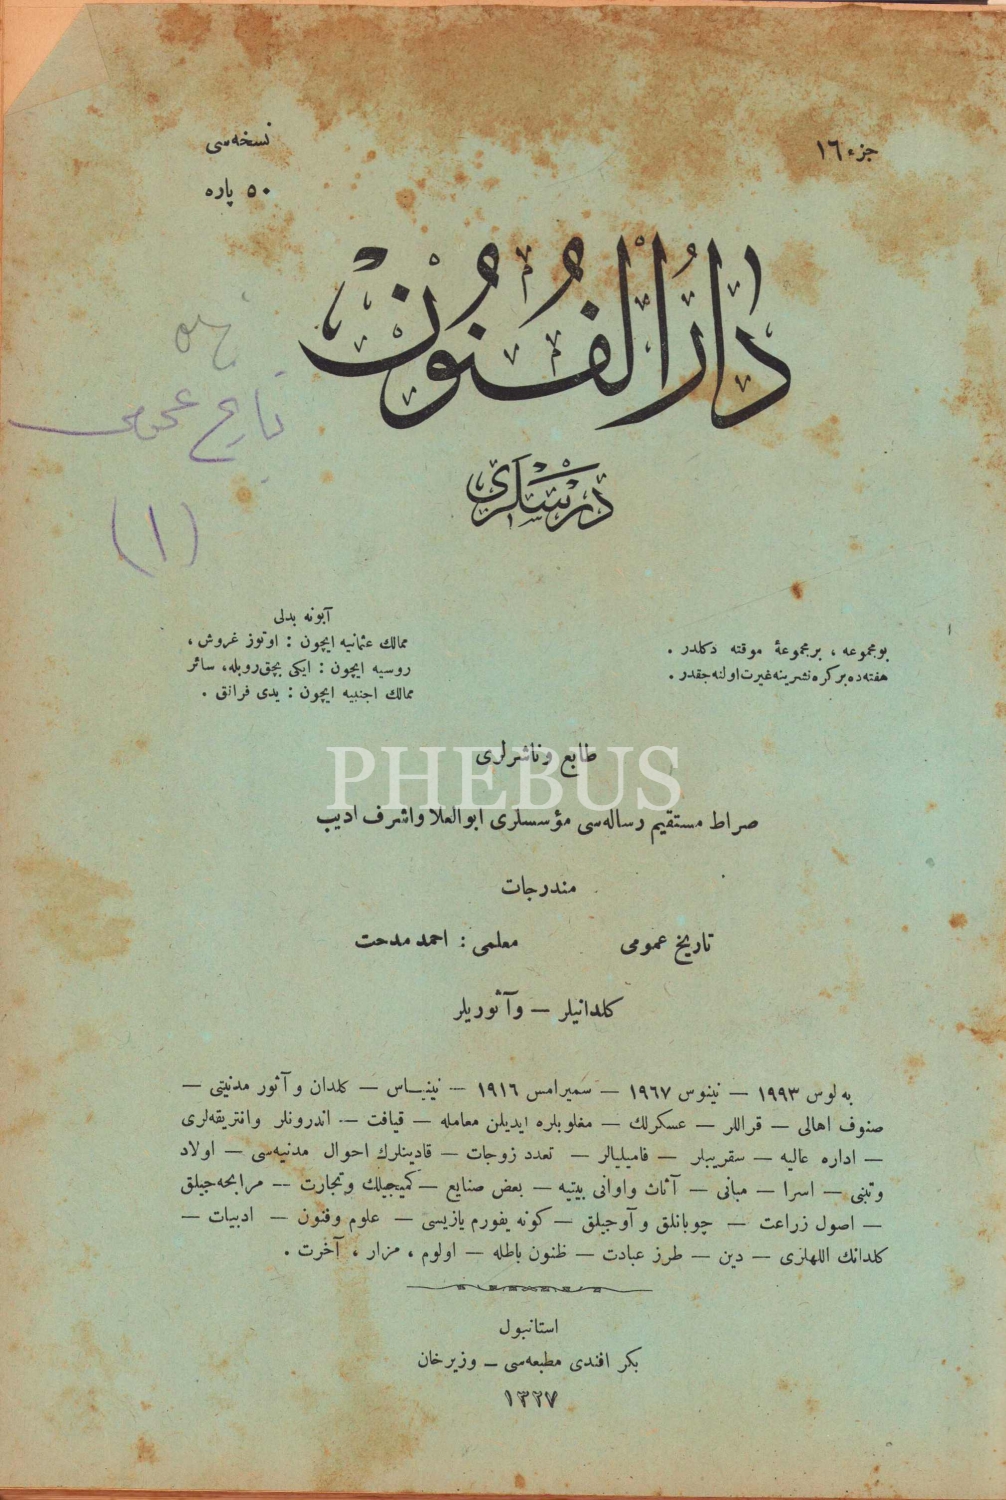 جزء ١٦
نسخه‌سی
٥٠ پاره
دَارُالْفُنُون
درسلری
تاریخ عمومی
(١)
بومجموعه ، برمجموعهٔ موقته دكلدر .
هفته‌ده بركره نشرینه غیرت اولنه‌جقدر .
آبونه بدلی
ممالك عثمانیه ایچون : اوتوز غروش ،
روسیه ایچون : ایكی بچق روبله، سائر
ممالك اجنبیه ایچون : یدی فرانق .
طابع وناشرلری
PHEBUS
صراط مستقیم رساله‌سی مؤسسلری ابوالعلا واشرف ادیب
مندرجات
تاریخ عمومی معلمی : احمد مدحت
كلدانیلر — وآثوریلر
به‌لوس ١٩٩٣ — نینوس ١٩٦٧ — سمیرامس ١٩١٦ — نینیـاس — كلدان و آثور مدنیتی —
صنوف اهالی — قراللر — عسكرلك — مغلوبلره ایدیلن معامله — قیافت — اندرونلر وانتریقه‌لری
— اداره عالیه — سقریبلر — فامیلیالر — تعدد زوجات — قادینلرك احوال مدنیه‌سی — اولاد
وتبنی — اسرا — مبانی — آثاث واوانی بیتیه — بعض صنایع — كمیجیلك وتجارت — مرابحه‌جیلق
— اصول زراعت — چوبانلق و آوجیلق — كونه یفورم یازیسی — علوم وفنون — ادبیات —
كلدانك اللهلری — دین — طرز عبادت — ظنون باطله — اولوم ، مزار ، آخرت .
استانبول
بكر افندی مطبعه‌سی — وزیرخان
١٣٢٧